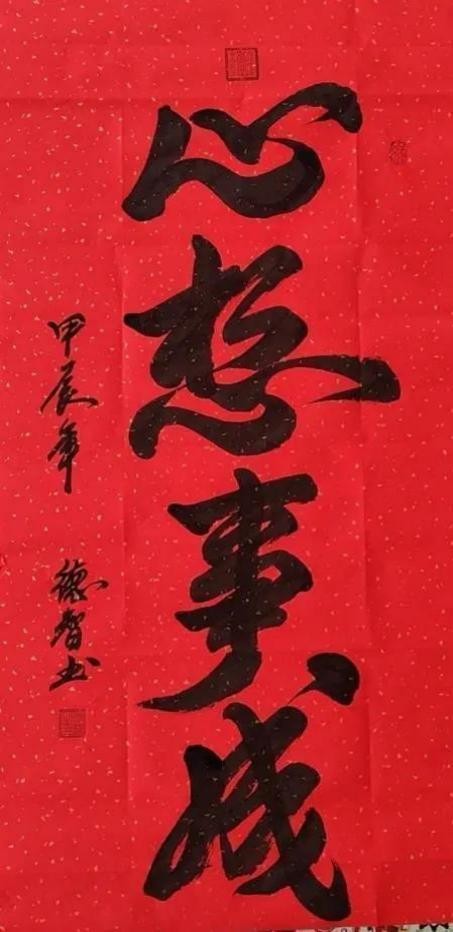 心想事成
甲辰年 德智书